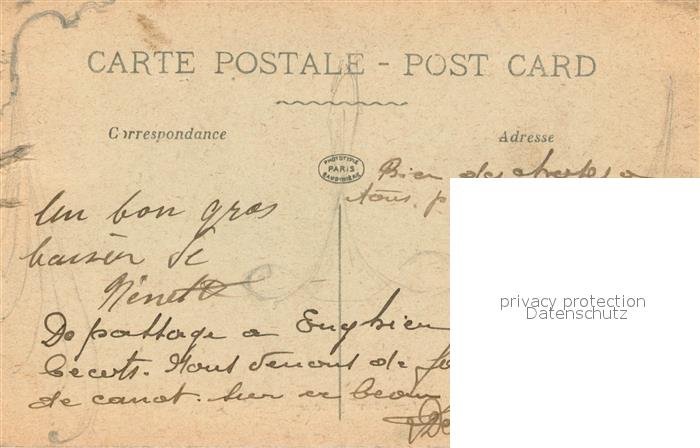 CARTE POSTALE - POST CARD
Correspondance
Adresse
PHOTOTYPIE
PARIS
Bien de choses a
tous. p
Un bon gros
baiser de
Nénette
De passage a Enghien
Nous venons de
de canot. sur ce beau
privacy protection
Datenschutz